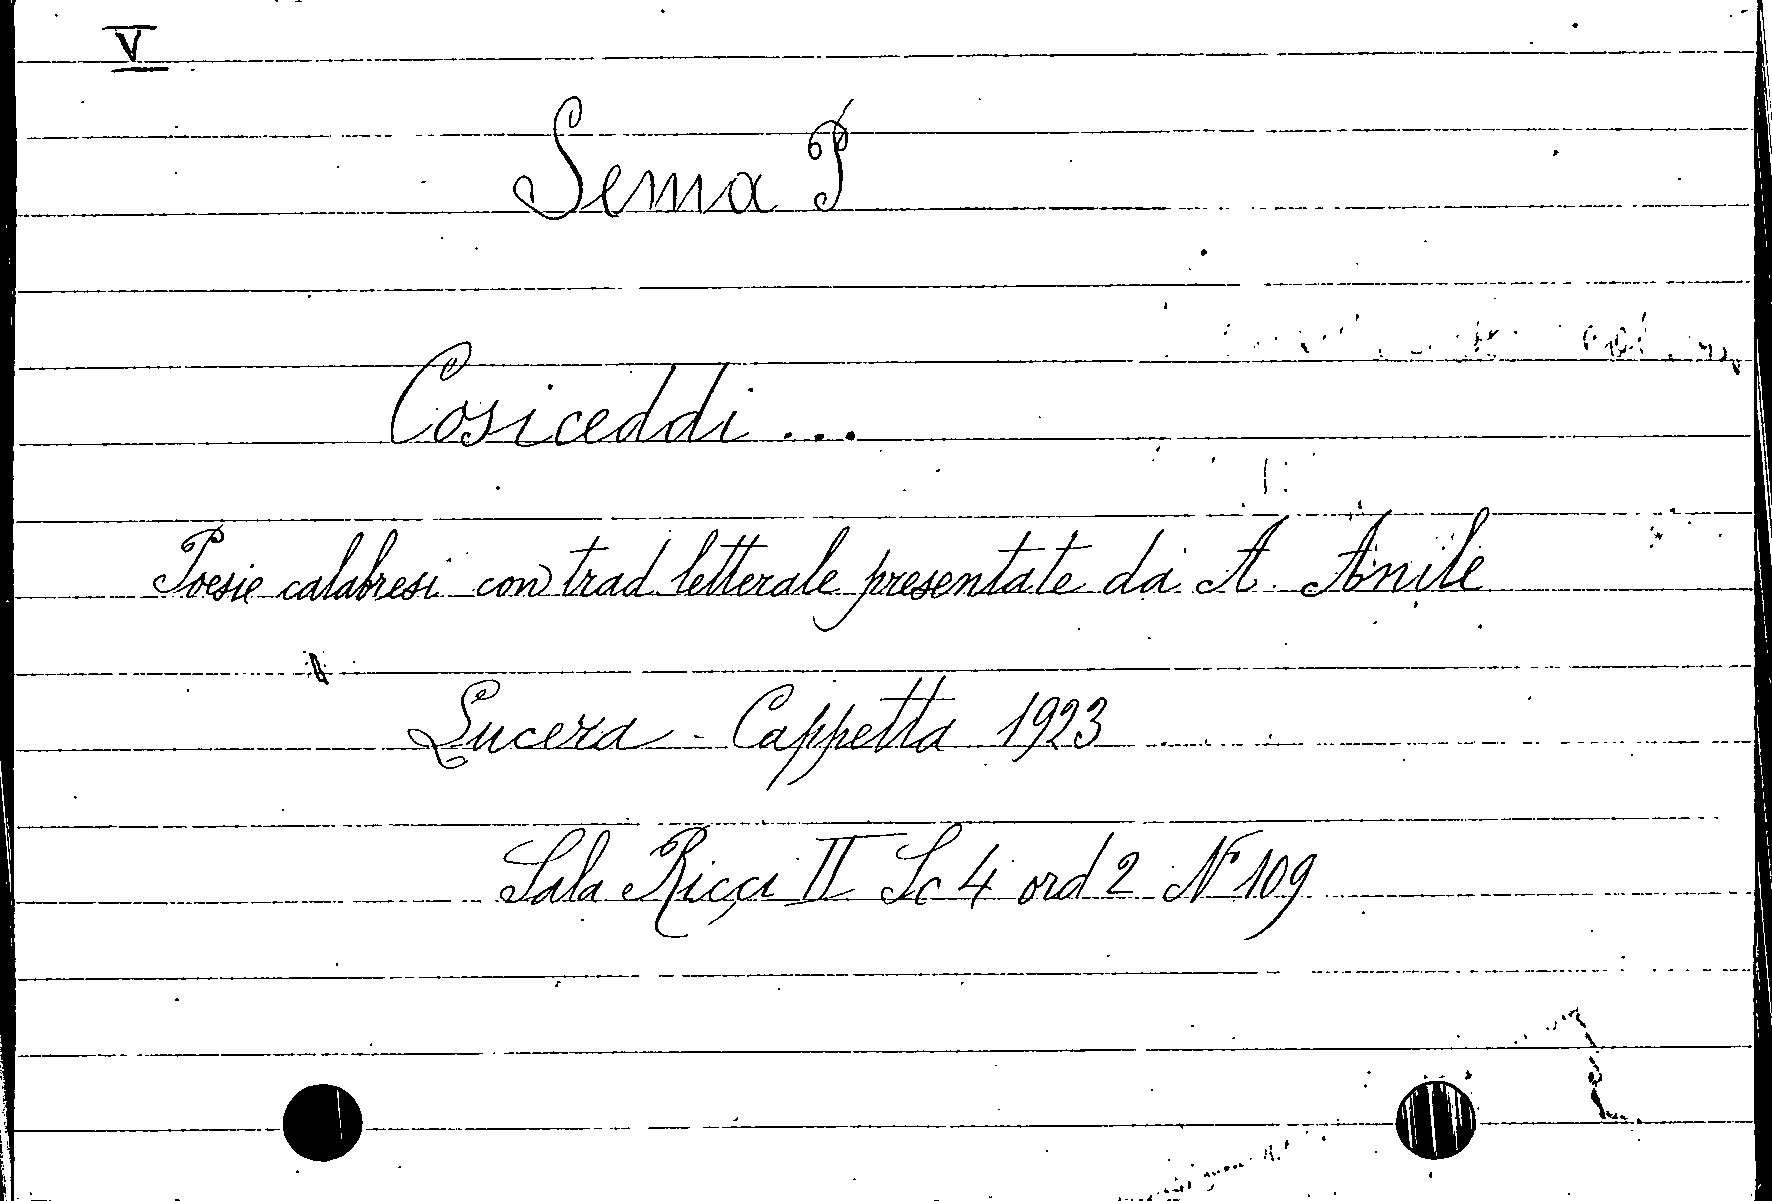 V
Sema P
Cosiceddi ...
Poesie calabresi con trad. letterale presentate da A. Anile
Lucera - Cappetta 1923
Sala Ricci II Sc 4 ord 2 N 109